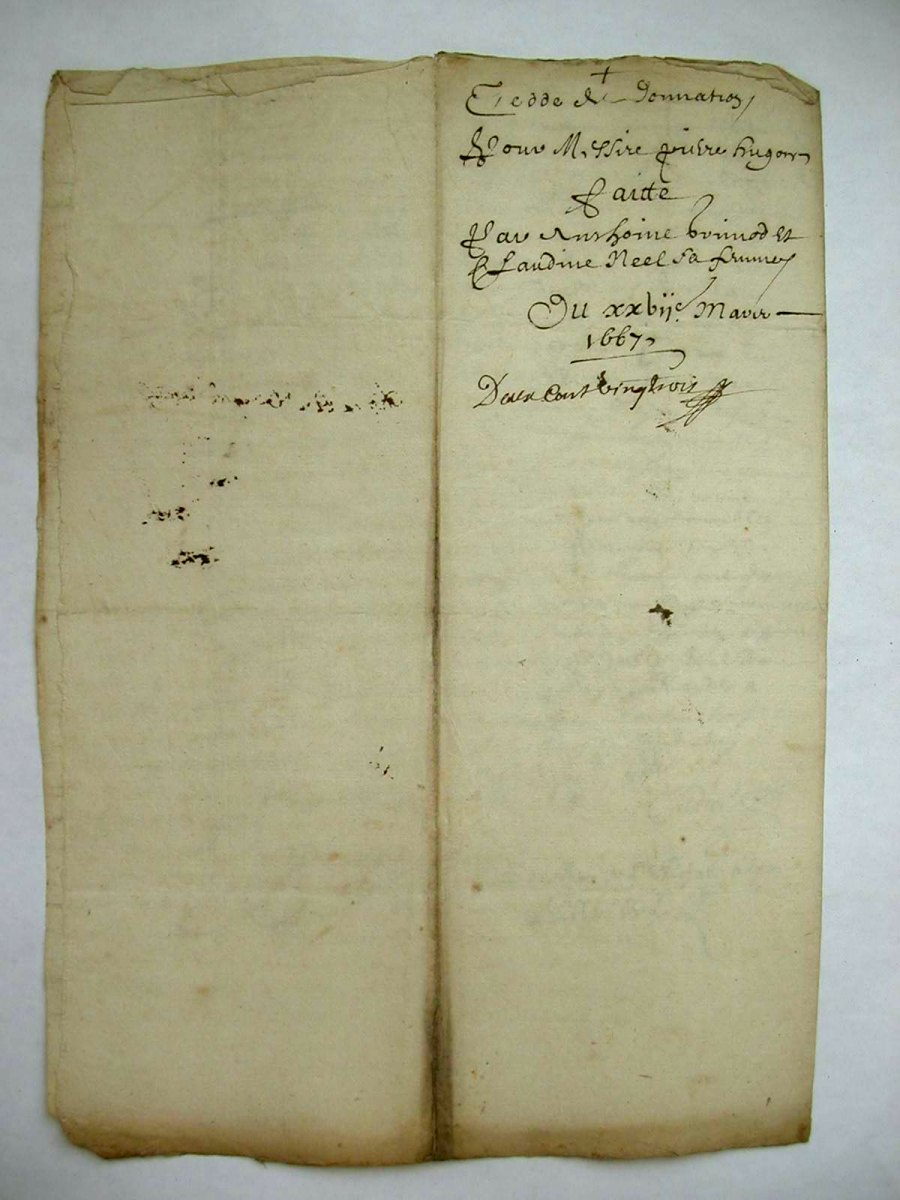 +
Cedde de Donnation
Pour Messire pierre hugon
faitte
Par Anthoine brunod et
Claudine Neel sa femme
Du xxvije. Mars
1667
cent vingtrois